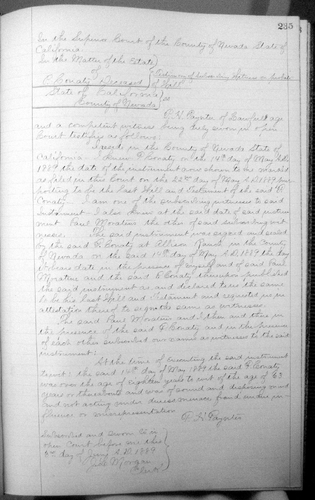 235
In the Superior Court of the County of Nevada State of
California
In the Matter of the Estate
of
F. Conaty Deceased
Testimony of Subscribing Witness
State of California
County of Nevada } ss
C. H. Paynter of lawful age
and a competent witness being duly sworn in open
Court testifies as follows:
I reside in the County of Nevada State of
California. I knew F. Conaty on the 14th day of May A.D.
1889 the date of the instrument now shown to me marked
as filed in this Court on the day of 1889
purporting to be the Last Will and Testament of the said F.
Conaty. I am one of the subscribing witnesses to said
Instrument I also knew at the said date of said instru-
ment Paul Moratine the other subscribing wit-
ness. The said instrument was signed and sealed
by the said F. Conaty at Allison Ranch in the County
of Nevada on the said 14th day of May A.D. 1889 the day
it bears date in the presence of myself and of said Paul
Moratine and the said F. Conaty thereupon published
the said instrument as and declared to us the same
to be his Last Will and Testament and requested us in
attestation thereof to sign the same as witnesses.
The said Paul Moratine and I then and thus in
the presence of the said F. Conaty and in the presence
of each other subscribed our names as witnesses to the said
instrument.
At the time of executing the said instrument
to wit: the said 14th day of May 1889 the said F. Conaty
was over the age of eighteen years to wit of the age of 63
years or thereabouts and was of sound and disposing mind
and not acting under duress menace fraud undue in-
fluence or misrepresentation
C. H. Paynter
Subscribed and sworn to in
open Court before me this
day of June A.D. 1889
Morgan
Clerk